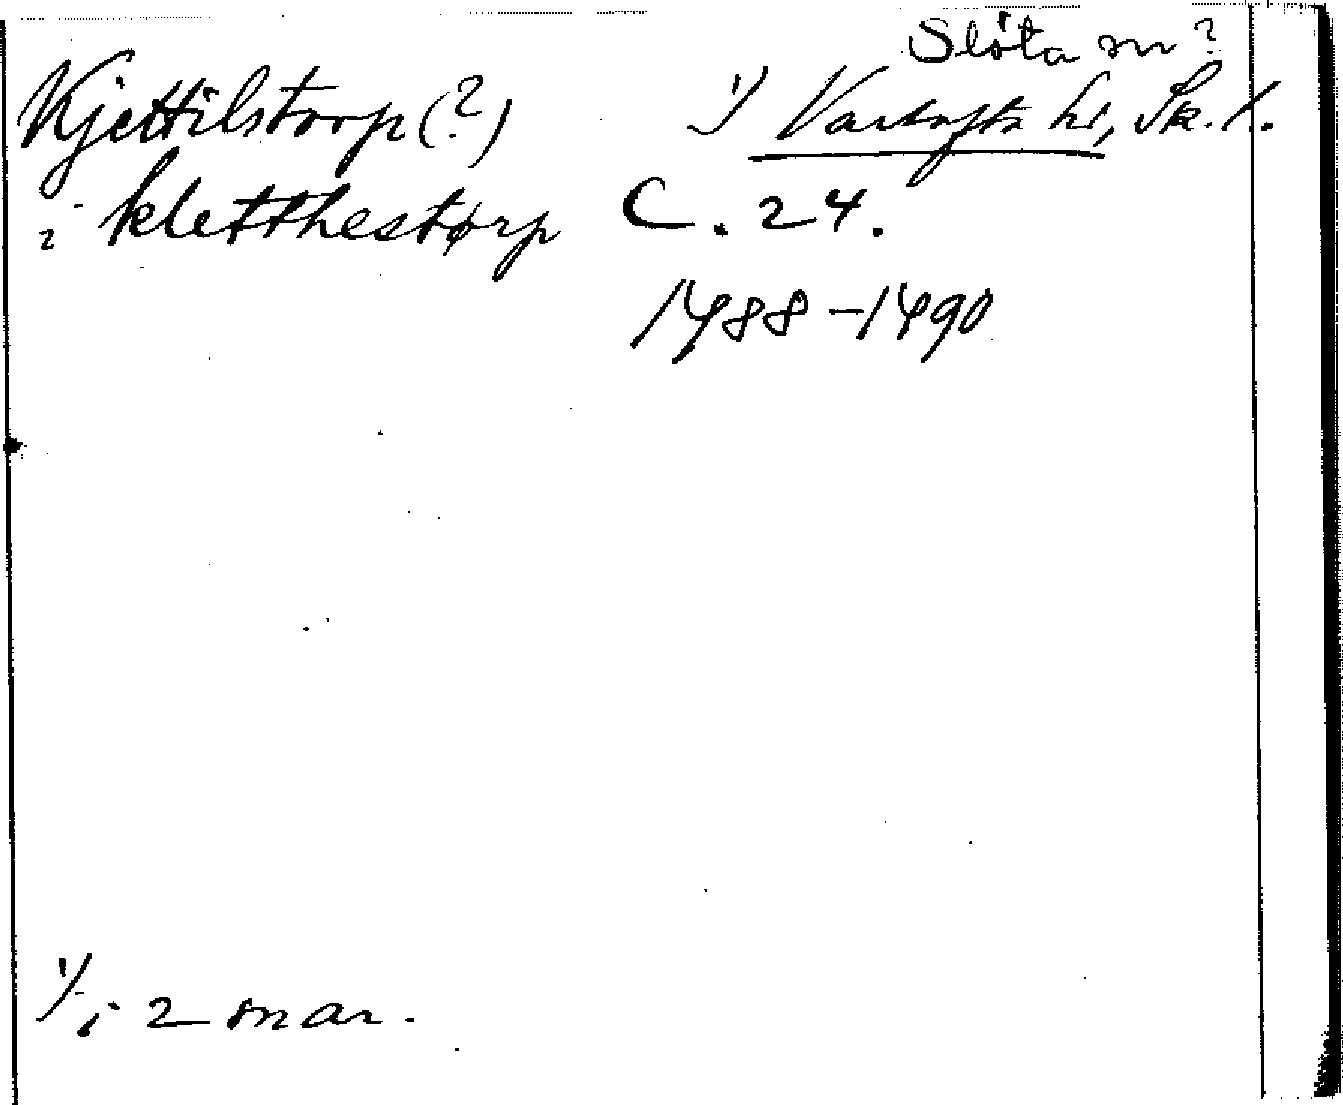 Slöta sn?
Kjettilstorp (?) 1/ Vartofta hd, Sk. l.
i kletthestørp C. 24.
1488-1490
1/ i 2 snar.